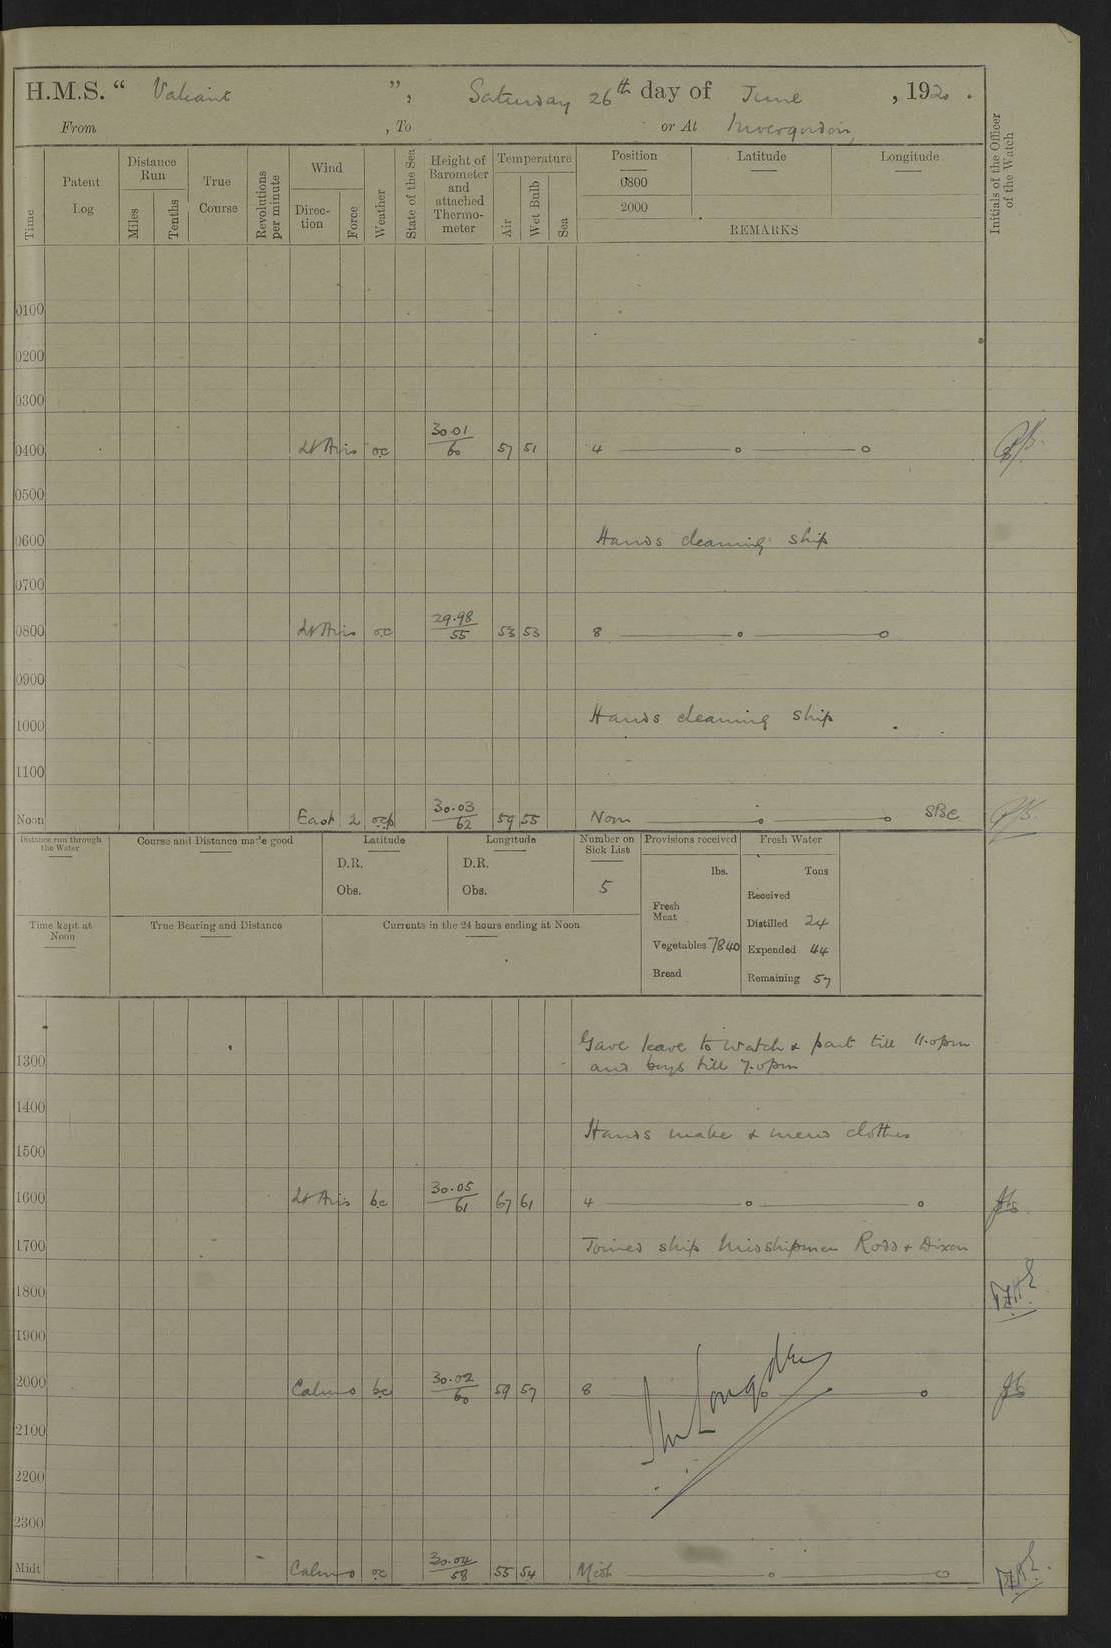 H.M.S. “ Valiant ”, Saturday 26th day of June , 1920 .
From , To or At Invergordon,
Time
Patent Log
Distance Run
Miles
Tenths
True Course
Revolutions per minute
Wind
Direction
Force
Weather
State of the Sea
Height of Barometer and attached Thermometer
Temperature
Air
Wet Bulb
Sea
Position Latitude Longitude
0800
2000
REMARKS
Initials of the Officer of the Watch
0100
0200
0300
0400 Lt Airs oc 30.01/60 57 51 4
0500
0600 Hands cleaning ship
0700
0800 Lt Airs oc 29.98/55 53 53 8
0900
1000 Hands cleaning ship
1100
Noon East 2 ocp 30.03/62 59 55 Noon SBC
Distance run through the Water
Course and Distance made good
Latitude
D.R.
Obs.
Longitude
D.R.
Obs.
Number on Sick List
5
Provisions received
lbs.
Fresh Meat
Vegetables 7840
Bread
Fresh Water
Tons
Received
Distilled 24
Expended 44
Remaining 57
Time kept at Noon
True Bearing and Distance
Currents in the 24 hours ending at Noon
Gave leave to watch & part till 11.0pm
1300 and boys till 7.0pm
1400
Hands make & mend clothes
1500
1600 Lt Airs bc 30.05/61 67 61 4
1700 Joined ship Midshipmen Ross & Dixon
1800
1900
2000 Calm 0 bc 30.02/60 59 57 8
2100
2200
2300
Midt Calm 0 oc 30.04/58 55 54 Midt